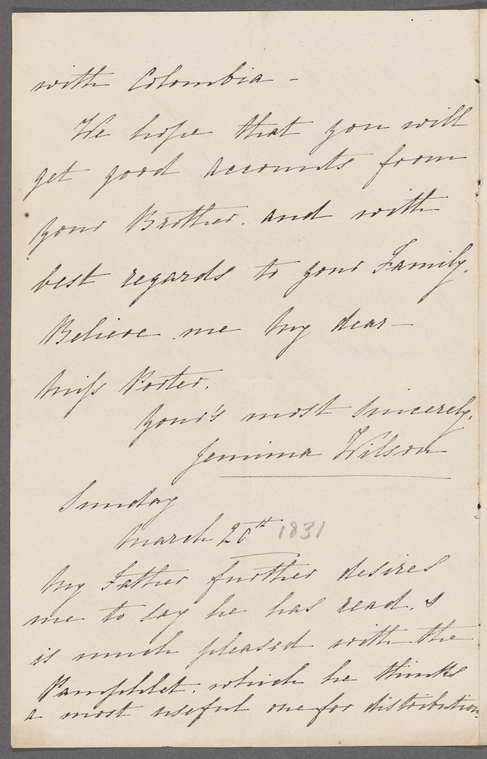 with Colombia -
We hope that you will
get good accounts from
your Brother. and with
best regards to your Family.
Believe me My dear -
Miſs Porter.
Your's most Sincerely,
Jemima Wilson
Sunday
March 20th 1831
My Father further desires
me to say he has read. &
is much pleased with the
Pamphlet. which he thinks
a most useful one for distribution